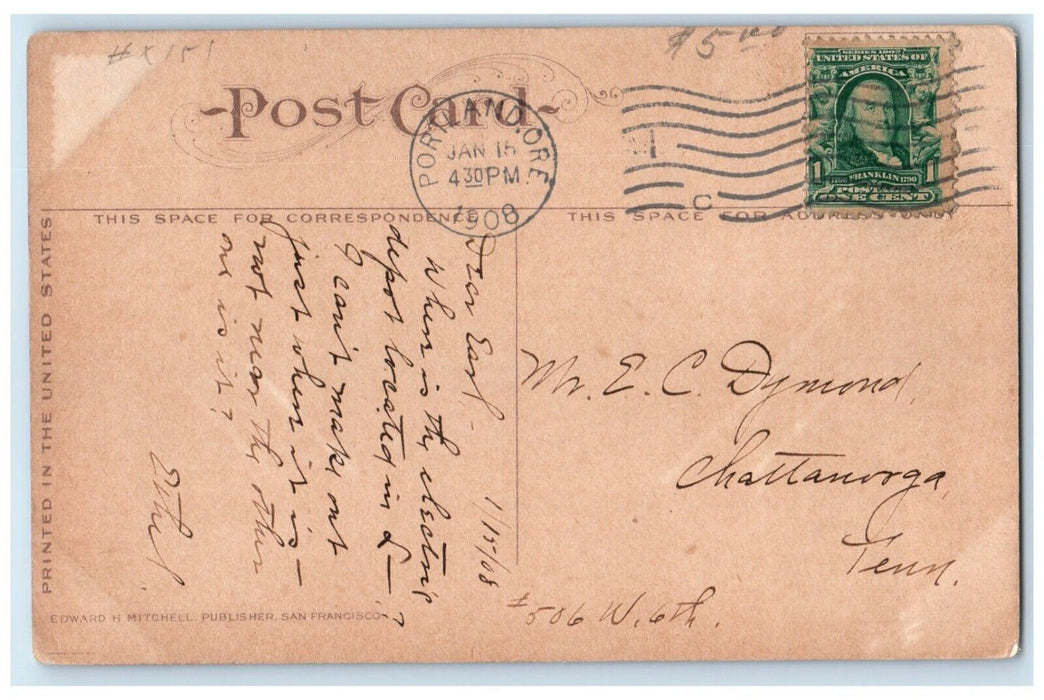 #X151
$5.00
Post Card
PORTLAND, ORE.
JAN 15
430PM
1908
C
SERIES 1902
UNITED STATES OF
AMERICA
1 1
1706 FRANKLIN 1790
POSTAGE
ONE CENT
THIS SPACE FOR CORRESPONDENCE
THIS SPACE FOR ADDRESS ONLY
PRINTED IN THE UNITED STATES
Dear Earl - 1/15/08
Where is the electric
depot located in L—?
I can't make out
just where it is —
not near the other
one is it?
Ethel
Mr. E. C. Dymond,
Chattanooga,
Tenn.
#506 W. 6th.
EDWARD H. MITCHELL, PUBLISHER, SAN FRANCISCO